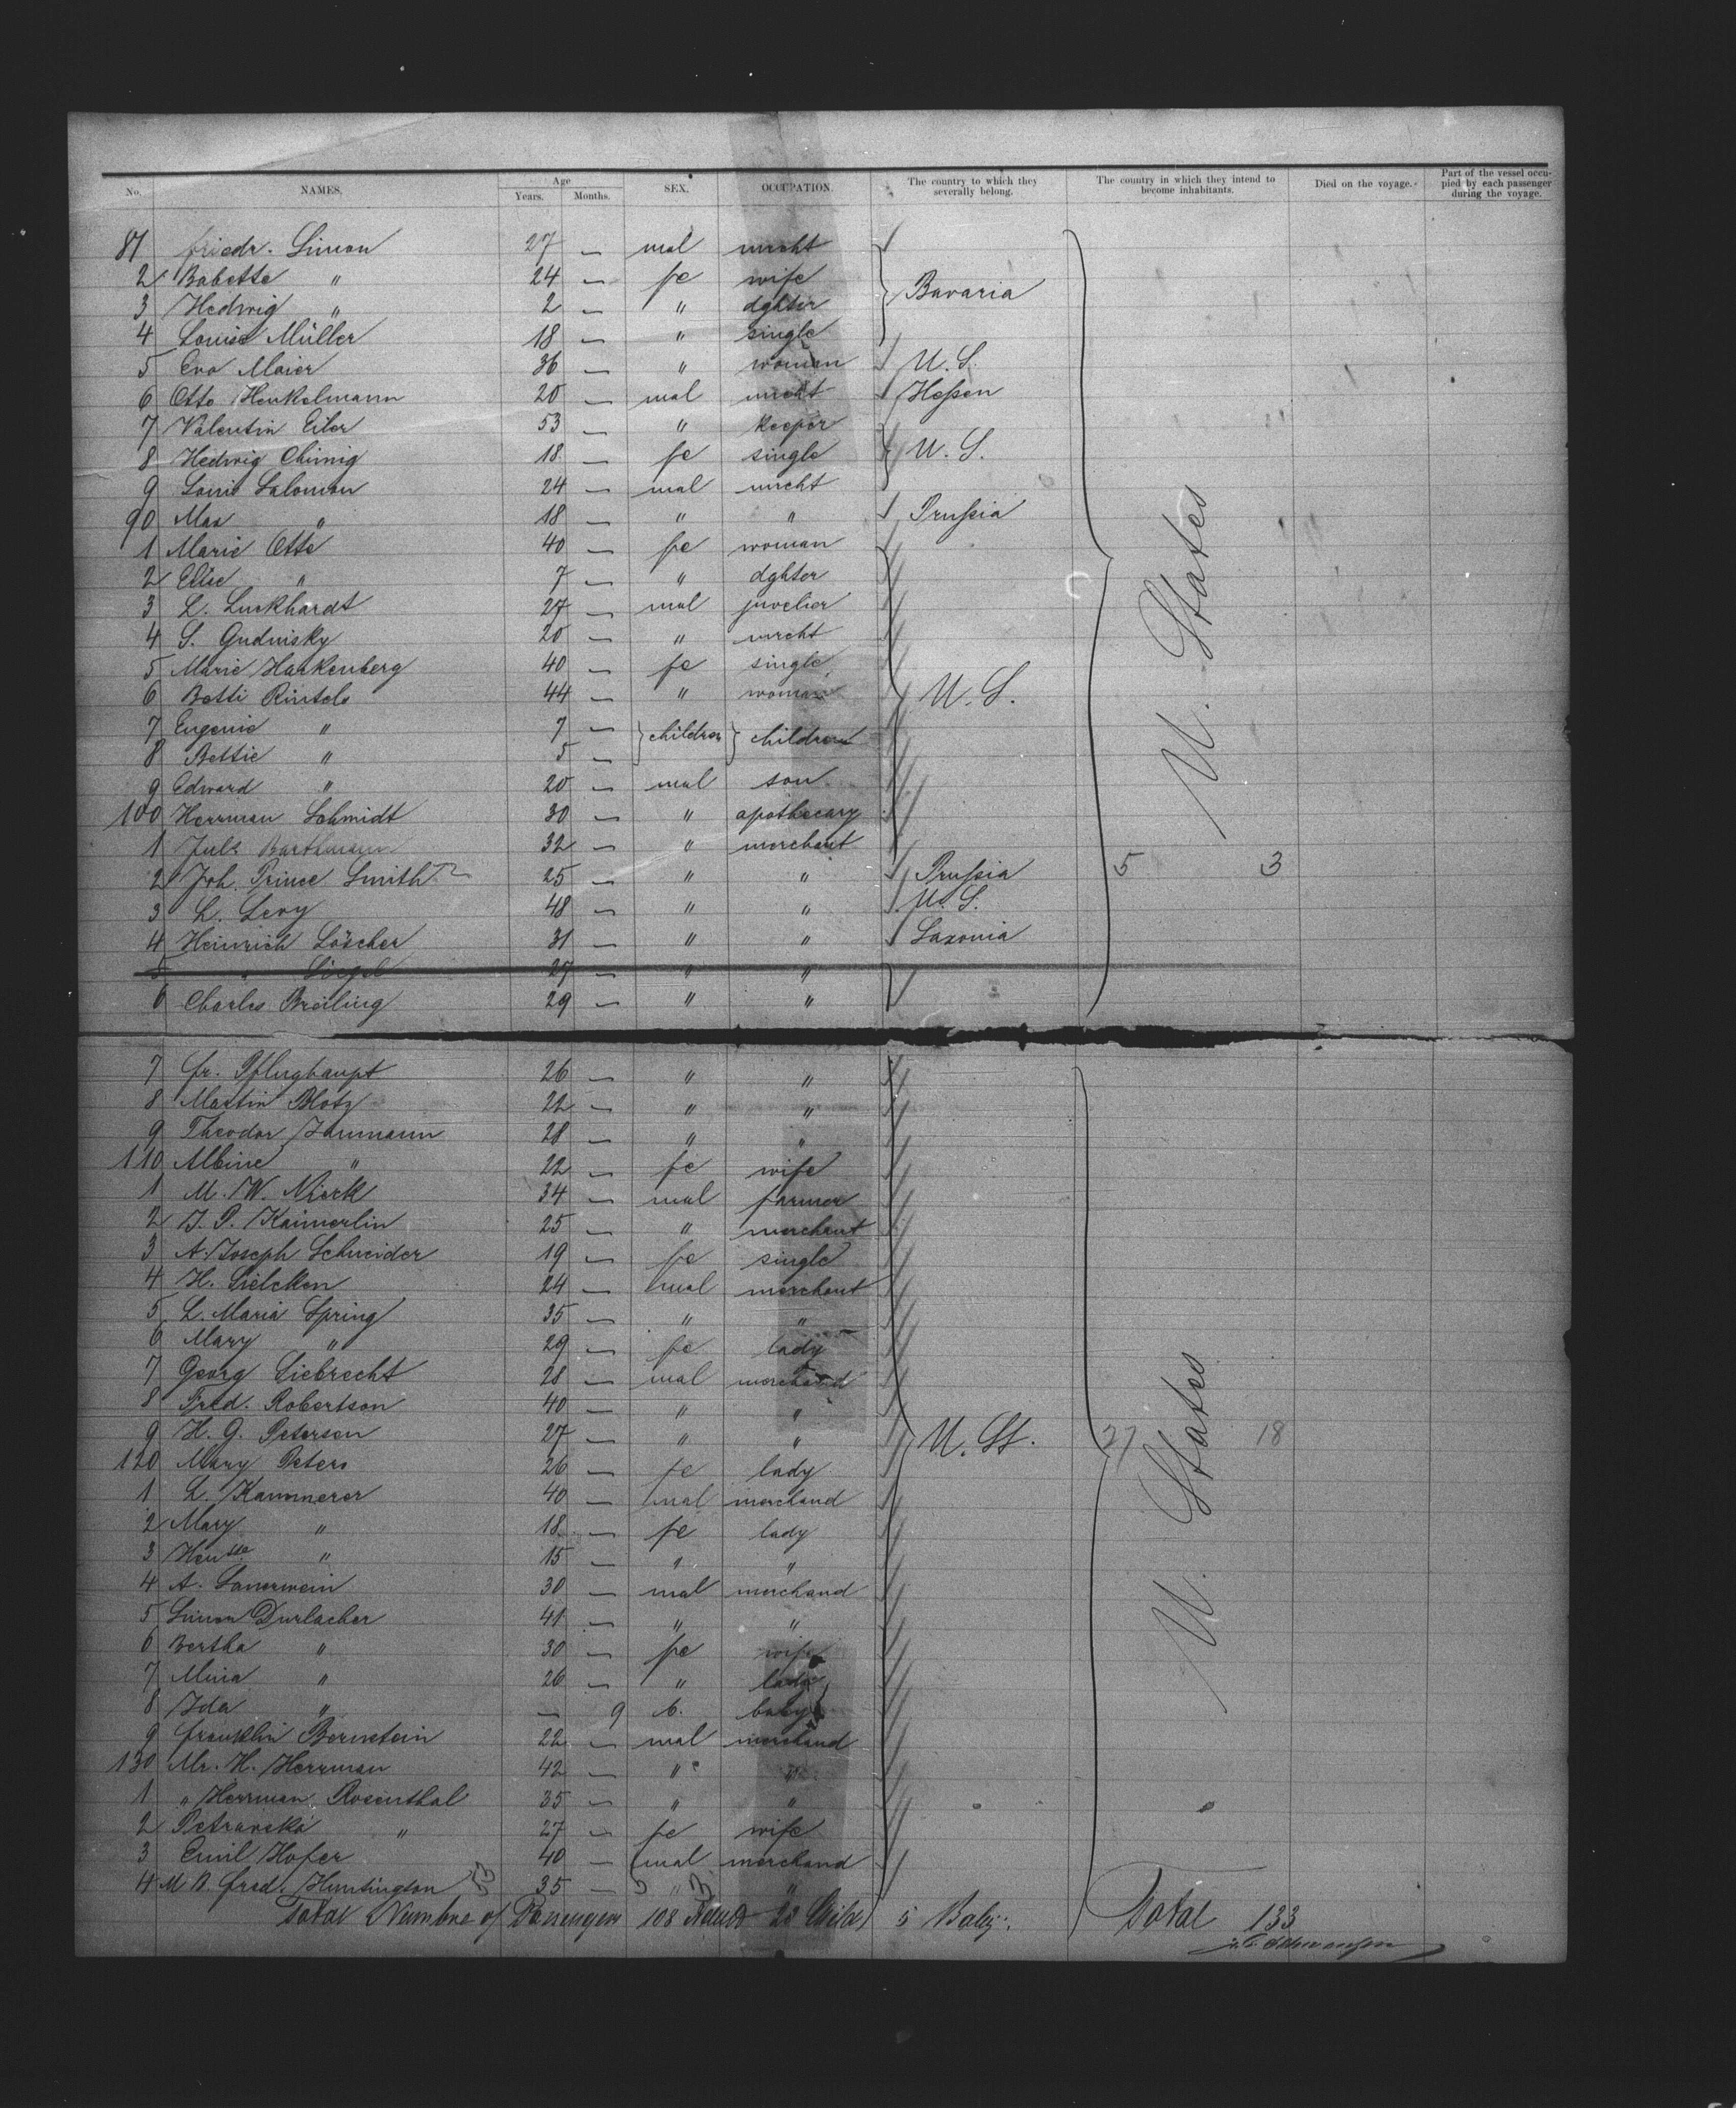 No. NAMES. Age Years. Months. SEX. OCCUPATION. The country to which they severally belong. The country in which they intend to become inhabitants. Died on the voyage. Part of the vessel occupied by each passenger during the voyage.
81 Friedr. Simon 27 — mal mrcht
2 Babette " 24 — fe wife
3 Hedwig " 2 — " dghter Bavaria
4 Louise Müller 18 — " single
5 Eva Maier 36 — " woman U. S.
6 Otto Henkelmann 20 — mal mrcht Heßen
7 Valentin Eiler 53 — " keeper
8 Hedwig Chimig 18 — fe single U. S.
9 Louis Salomon 24 — mal mrcht
90 Max " 18 — " " Prußia
1 Marie Otto 40 — fe woman
2 Elise " 7 — " dghter
3 L. Luckhardt 27 — mal juvelier
4 S. Gudnisky 20 — " mrcht
5 Marie Harkenberg 40 — fe single
6 Betti Rintels 44 — " woman U. S.
7 Eugenie " 7 — children children
8 Bettie " 5 —
9 Edward " 20 — mal son
100 Herrman Schmidt 30 — " apothecary
U. States
1 Juls Barthmann 32 — " merchant
2 Joh. Prince Smith 25 — " " Prußia 5 3
3 L. Levy 48 — " " U. S.
4 Heinrich Löscher 31 — " " Saxonia
5 " Siegel 27 — " "
6 Charles Breiling 29 — " "
7 Fr. Pflughaupt 26 — " "
8 Martin Blotz 22 — " "
9 Theodor Jaumann 28 — " "
110 Albine " 22 — fe wife
1 M. W. Nierk 34 — mal farmer
2 J. P. Kaimerlin 25 — " merchant
3 A. Joseph Schneider 19 — fe single
4 H. Sielcken 24 — mal merchant
5 L. Maria Spring 35 — " "
6 Mary " 29 — fe lady
7 Georg Siebrecht 28 — mal merchand
8 Fred. Robertson 40 — " "
9 H. G. Peterson 27 — " " U. St. 27 18
120 Mary Peters 26 — fe lady
1 L. Kammerer 40 — mal merchand
2 Mary " 18 — fe lady
3 Hen " 15 — " "
4 A. Sauerwein 30 — mal merchand
5 Simon Durlacher 41 — " "
6 Bertha " 30 — fe wife
U. States
7 Mina " 26 — " lady
8 Ida " — 9 b. baby
9 Franklin Bernstein 22 — mal merchand
130 Mr. H. Herrman 42 — " "
1 " Herrman Rosenthal 35 — " "
2 " 27 — fe wife
3 Emil Hofer 40 — mal merchand
4 M R. Fred. Huntington 35 — " "
Total Number of Passengers 108 Adults 20 Child 5 Baby. Total 133